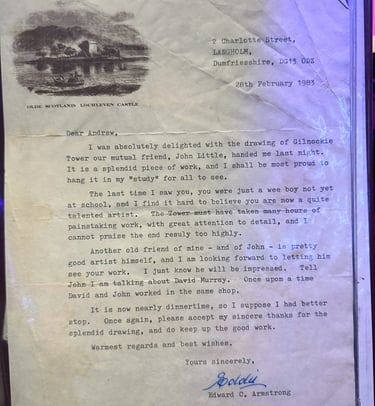 2 Charlotte Street,
LANGHOLM,
Dumfriesshire, DG13 0DZ
28th February 1983
OLDE SCOTLAND LOCHLEVEN CASTLE
Dear Andrew,
I was absolutely delighted with the drawing of Gilnockie
Tower our mutual friend, John Little, handed me last night.
It is a splendid piece of work, and I shall be most proud to
hang it in my "study" for all to see.
The last time I saw you, you were just a wee boy not yet
at school, and I find it hard to believe you are now a quite
talented artist. The Tower must have taken many hours of
painstaking work, with great attention to detail, and I
cannot praise the end resuly too highly.
Another old friend of mine - and of John - is pretty
good artist himself, and I am looking forward to letting him
see your work. I just know he will be impressed. Tell
John I am talking about David Murray. Once upon a time
David and John worked in the same shop.
It is now nearly dinnertime, so I suppose I had better
stop. Once again, please accept my sincere thanks for the
splendid drawing, and do keep up the good work.
Warmest regards and best wishes.
Yours sincerely,
Eddie
Edward C. Armstrong